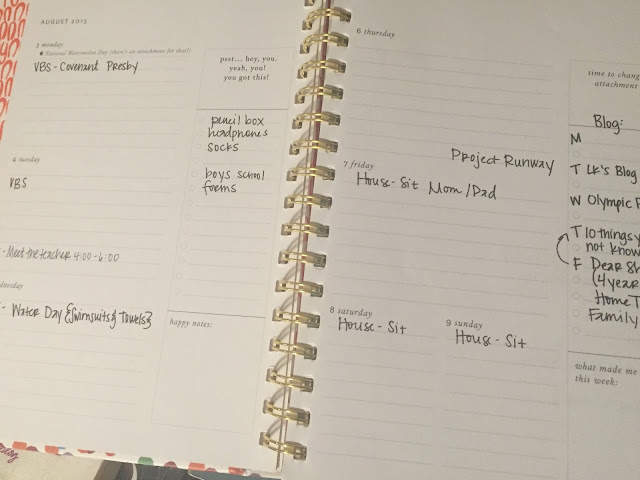 AUGUST 2015
3 monday
National Watermelon Day (there's an attachment for that!)
VBS - Covenant Presby
4 tuesday
VBS
- Meet the teacher 4:00 - 6:00
- Water Day {Swimsuits & Towels}
psst... hey, you.
yeah, you!
you got this!
pencil box
headphones
socks
boys school
forms
happy notes:
6 thursday
Project Runway
7 friday
House - Sit Mom / Dad
8 saturday
House - Sit
9 sunday
House - Sit
time to chang
attachment
Blog:
M
T LK's Blog
W Olympic
T 10 things y
not know
F Dear Sh
(4 year
Home T
Family
what made me
this week: